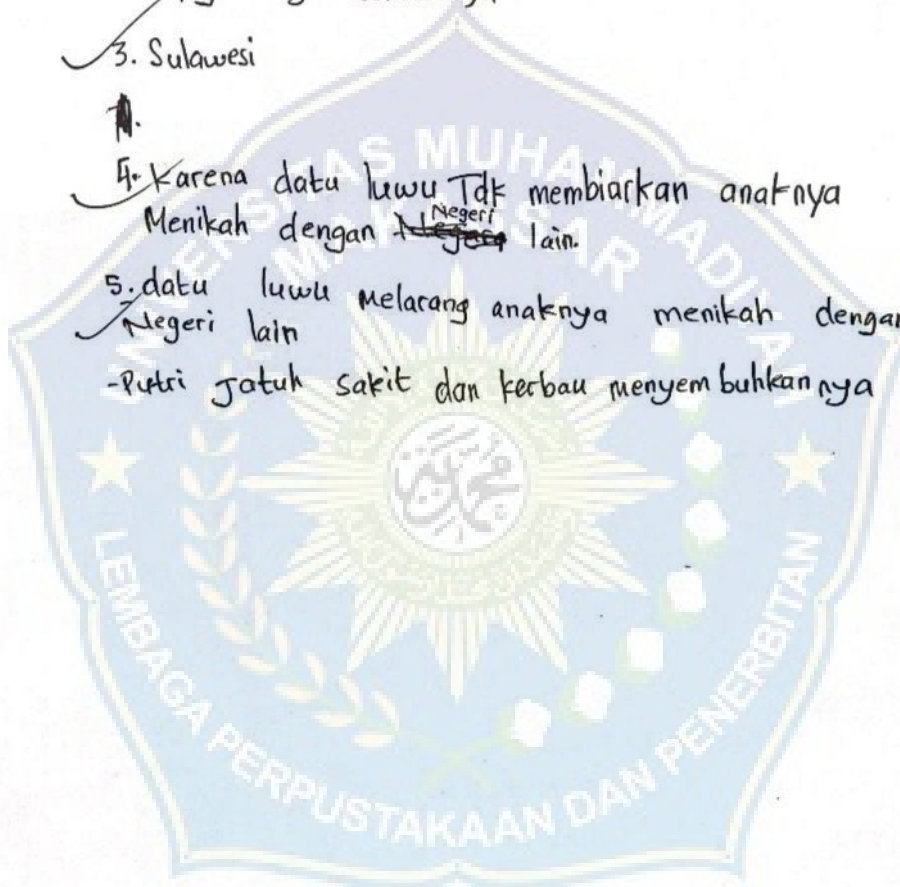 3. Sulawesi
4. Karena datu luwu Tdk membiarkan anaknya
Menikah dengan Negeri lain.
5. datu luwu melarang anaknya menikah dengan
Negeri lain
-Putri Jatuh sakit dan kerbau menyembuhkannya
UNIVERSITAS MUHAMMADIYAH
MAKASSAR
LEMBAGA PERPUSTAKAAN DAN PENERBITAN